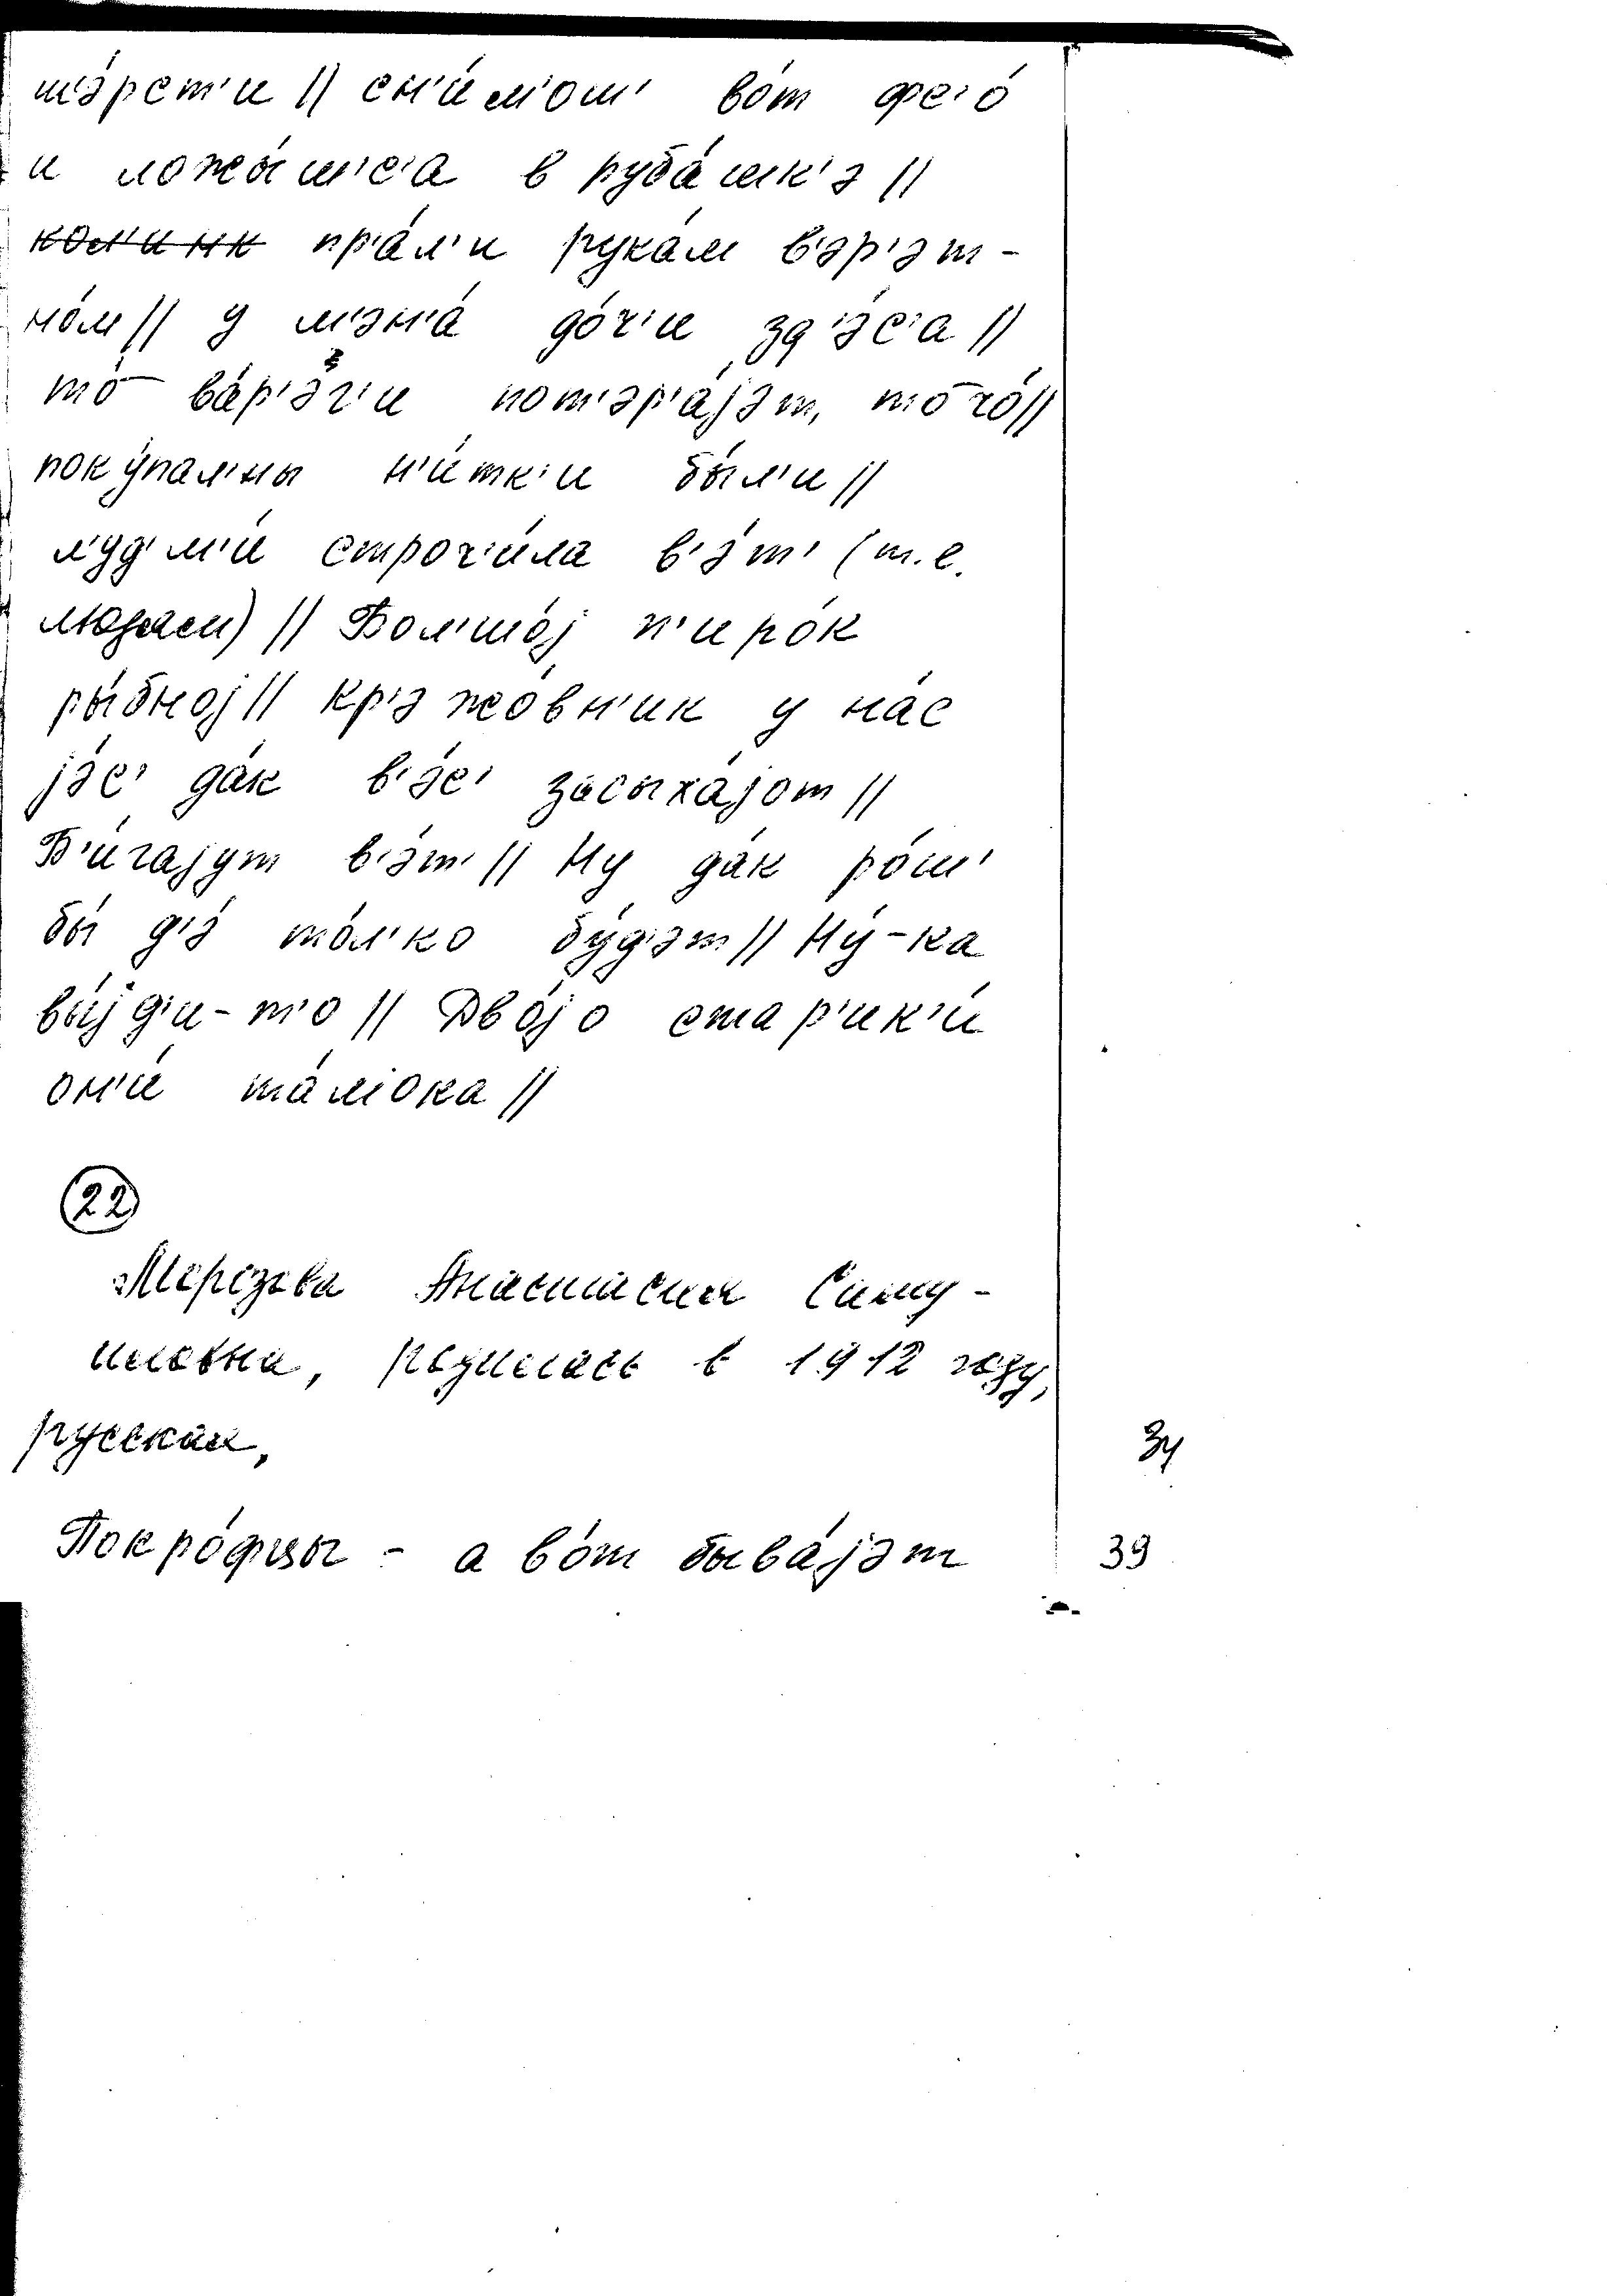 ш'э́рст'и // сн'и́м'ош' во́т фс'о́
и ложы́ш'с'а в руба́шк'э //
ком'и нк пр'а́л'и рука́м в'эр'эт-
но́м // у м'эн'а́ до́ч'и зд'э́с'а //
то́ — ва́р'эг'и пот'эр'а́јэт, то чо́ //
поку́пал'ны н'и́тк'и бы́л'и //
л'уд'м'и́ строч'и́ла в'э́т' (т.е.
людям) // Бол'шо́ј п'иро́к
ры́бној // кр'эжо́вн'ик у на́с
јэ́с' да́к в'э́с' засыха́јот //
Б'и́гајут в'э́т' // Ну да́к ро́ш'
бы́ д'э́ то́л'ко бу́д'эт // Ну́-ка
вы́јд'и-т'о // Дво́јо стар'ик'и́
он'и́ та́м'ока //
22
Морозова Анастасия Саму-
иловна, родилась в 1912 году,
русская,
Покро́фцы - а во́т быва́јэт
39